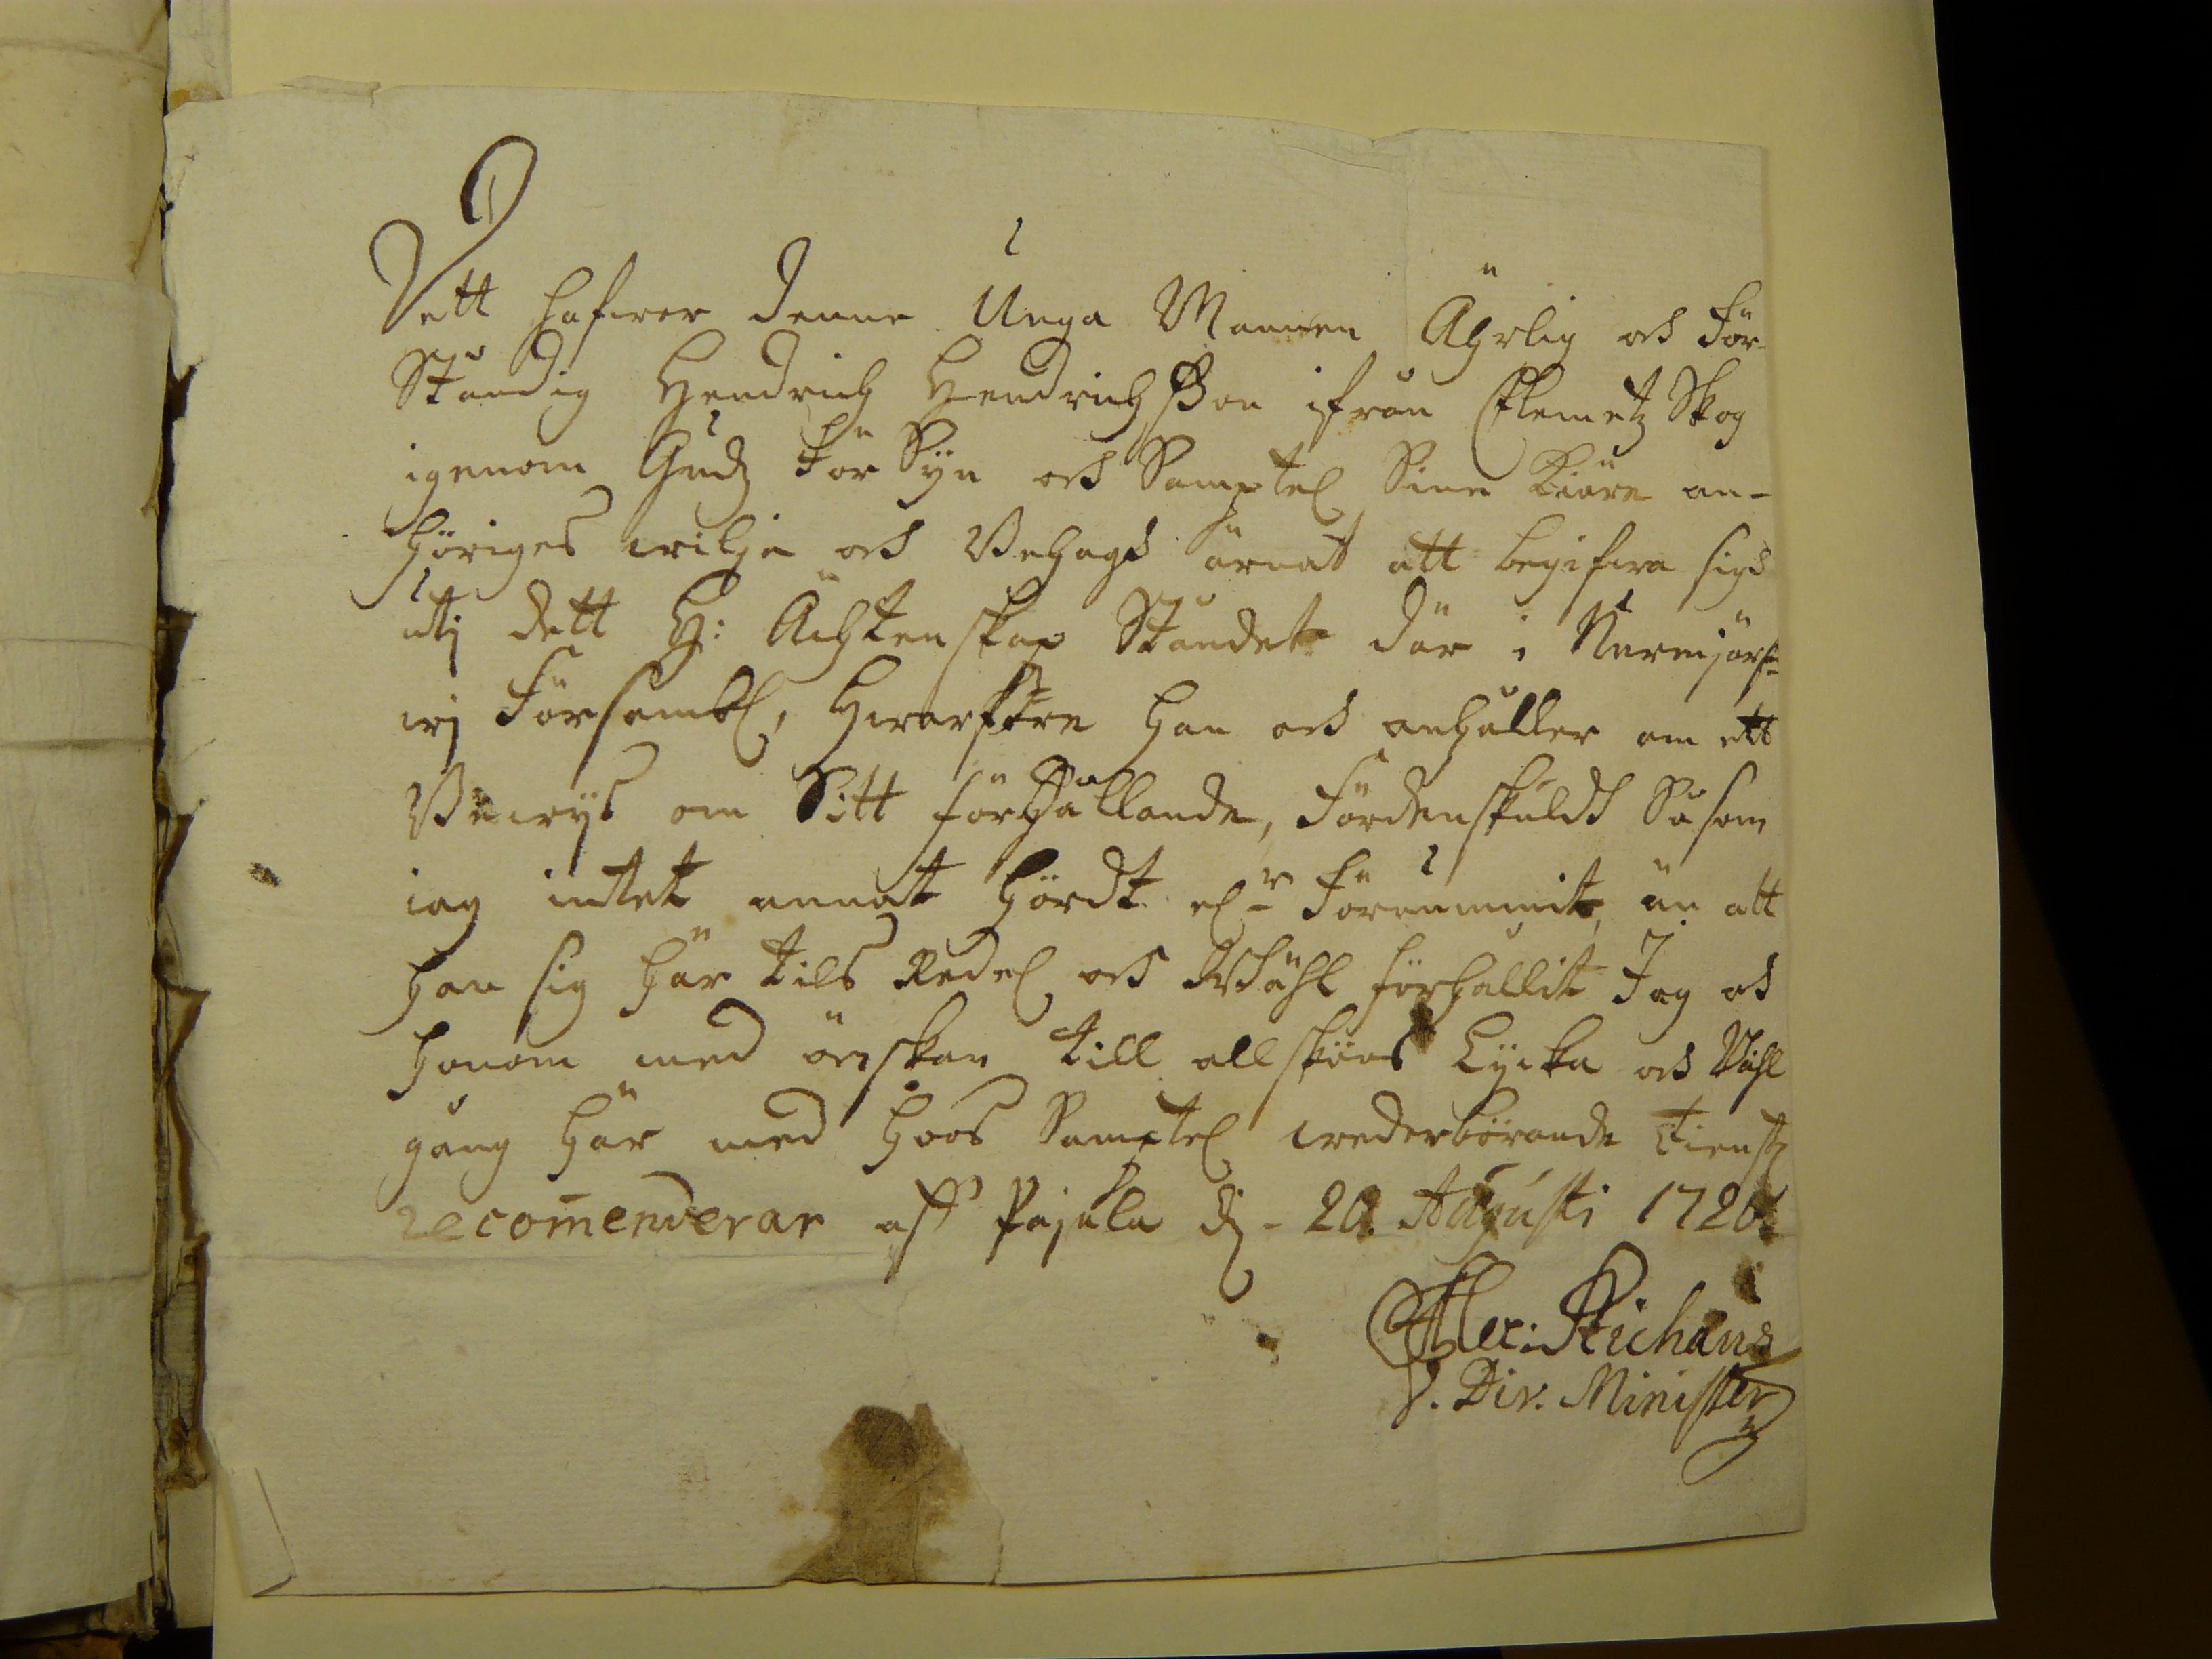 Dett hafwer denne Unga Mannen Ährlig och För-
Ståndig Hendrich Hendrichßon ifrån Clemetz Skog
igenom Gudz För Syn och Samptel Sine Kiäre an-
höriges wilje och Behagh ärnat att begifwa sigh
utj dett H: Ächtenskap Ståndet där i Nurmijärf-
wj Försambl, Hwarföre han och anhåller om ett
Bewijs om Sitt förhållande, Fördenskuldh Såsom
iag inttet annatt hördt elr Förnummit, än att
han sig här tils Redel och Wähl förhallit Jag och
honom med önskan till allsköns Lycka och Wähl
gång här med hoos Samptel wederbörande tienstl
recom̄enderar aff Pajula d. 20. Augusti 1726
Alex: Richanus
V. Div. Minister